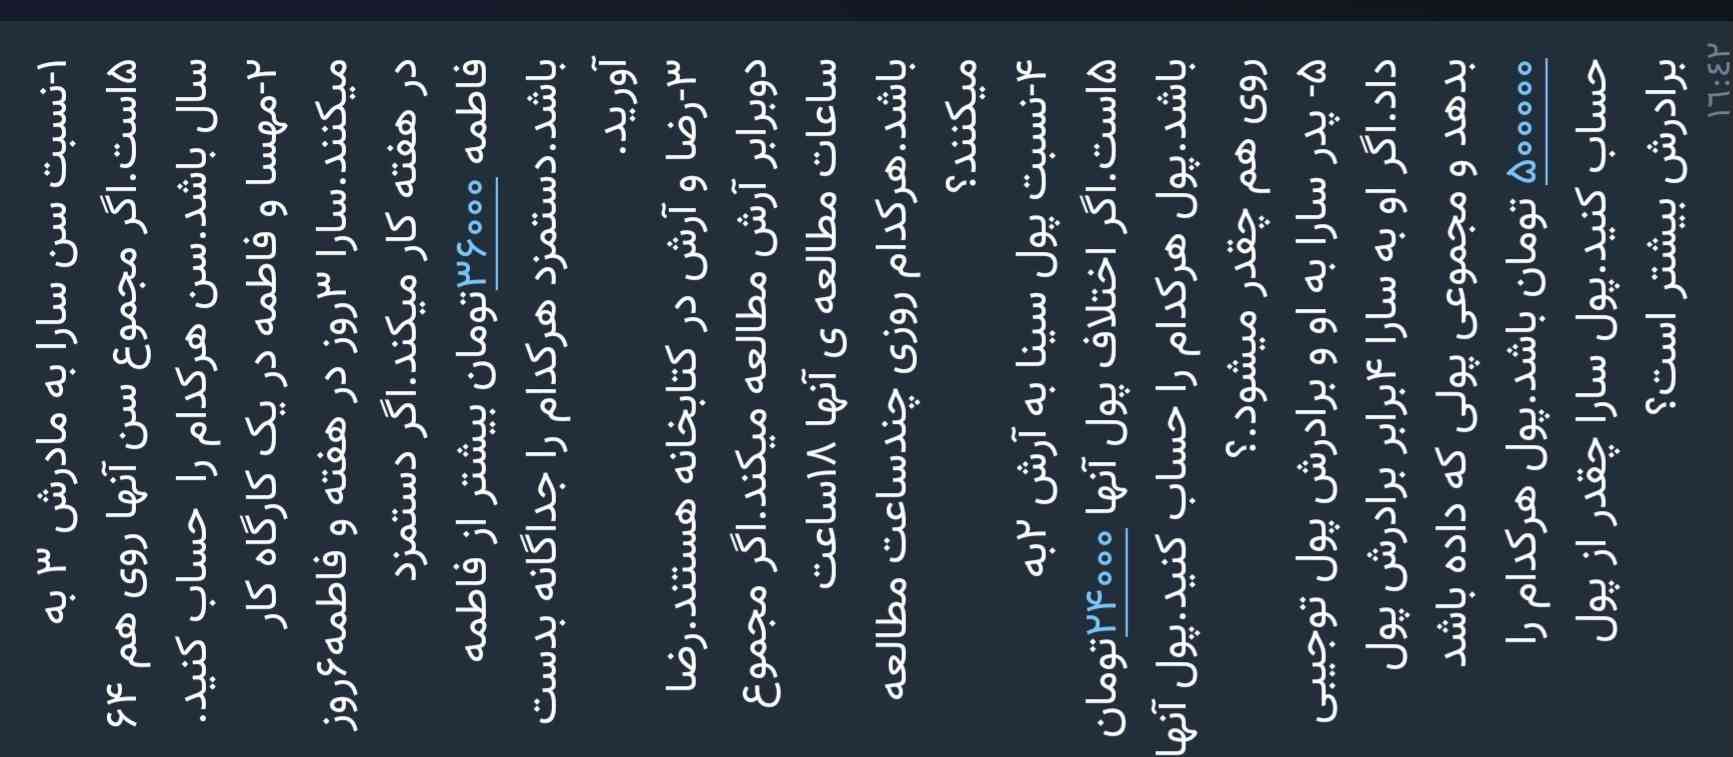 ۱-نسبت سن سارا به مادرش ۳ به
۵است.اگر مجموع سن آنها روی هم ۶۴
سال باشد.سن هرکدام را حساب کنید.
۲-مهسا و فاطمه در یک کارگاه کار
میکنند.سارا ۳روز در هفته و فاطمه۶روز
در هفته کار میکند.اگر دستمزد
فاطمه ۳۶۰۰۰تومان بیشتر از فاطمه
باشد.دستمزد هرکدام را جداگانه بدست
آورید.
۳-رضا و آرش در کتابخانه هستند.رضا
دوبرابر آرش مطالعه میکند.اگر مجموع
ساعات مطالعه ی آنها ۱۸ساعت
باشد.هرکدام روزی چندساعت مطالعه
میکنند؟
۴-نسبت پول سینا به آرش ۲به
۵است.اگر اختلاف پول آنها ۲۴۰۰۰تومان
باشد.پول هرکدام را حساب کنید.پول آنها
روی هم چقدر میشود.؟
۵- پدر سارا به او و برادرش پول توجیبی
داد.اگر او به سارا ۴برابر برادرش پول
بدهد و مجموعی پولی که داده باشد
۵۰۰۰۰۰ تومان باشد.پول هرکدام را
حساب کنید.پول سارا چقدر از پول
برادرش بیشتر است؟
١٦:٤٢